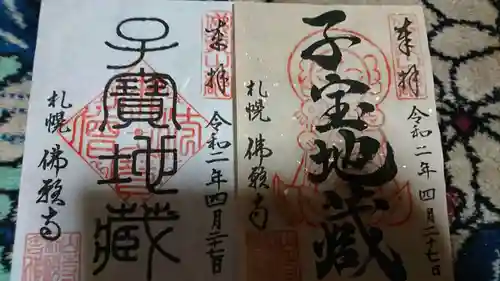 奉拝
子寶地蔵
令和二年四月二十七日
札幌 佛願寺
奉拝
子宝地蔵
令和二年四月二十七日
札幌 佛願寺